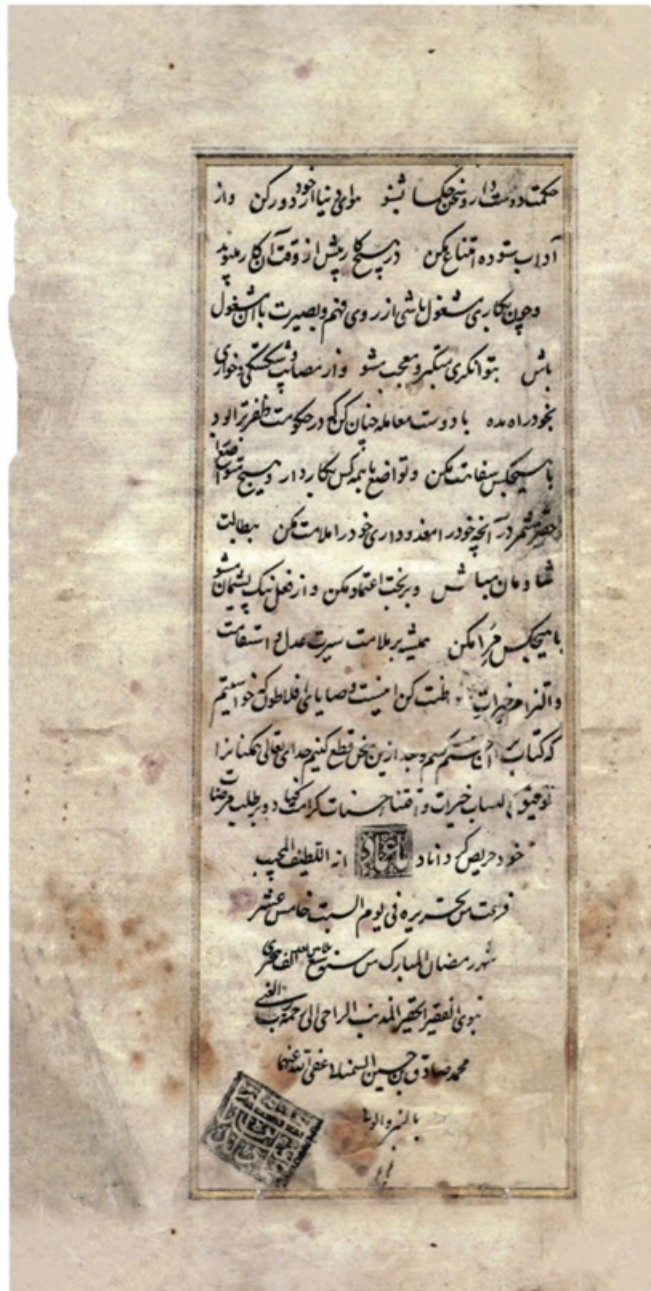 حکمت دوست دار و سخن حکما بشنو هوای دنیا از خود دور کن و از
آداب ستوده امتناع مکن در هیچ کار پیش از وقت آن کار مپیوند
و چون بکاری مشغول باشی از روی فهم و بصیرت باآن مشغول
باش بتوانگری متکبر و معجب مشو و از مصایب شکستگی و خواری
بخود راه مده با دوست معامله چنان کن که در حکومت ظفر ترا بود
با هیچکس سفاهت مکن و تواضع با همه کس بکار دار و هیچ متواضع را
حقیر مشمر در آنچه خود را معذور داری خود را ملامت مکن ببطالت
شادمان مباش و بر بخت اعتماد مکن و از فعل نیک پشیمان مشو
با هیچکس مرا مکن همیشه بر ملامت سیرت عدل و استقامت
و التزام خیرات مواظبت کن اینست وصایای افلاطون که خواستیم
که کتاب بر آن ختم کنیم و بعد ازین سخن قطع کنیم خدای تعالی همکنانرا
توفیق اکتساب خیرات و اقتنا حسنات کرامت کناد و بر طلب مرضات
خود حریص گرداناد انه اللطیف المجیب
فرغت من تحریره فی یوم السبت خامس عشر
شهر رمضان المبارک من سنه الف هجری
نبوی الفقیر الحقیر المذنب الراجی الی رحمة ربه الغنی
محمد صادق بن حسین عفی الله عنهما
بالنبر و الو